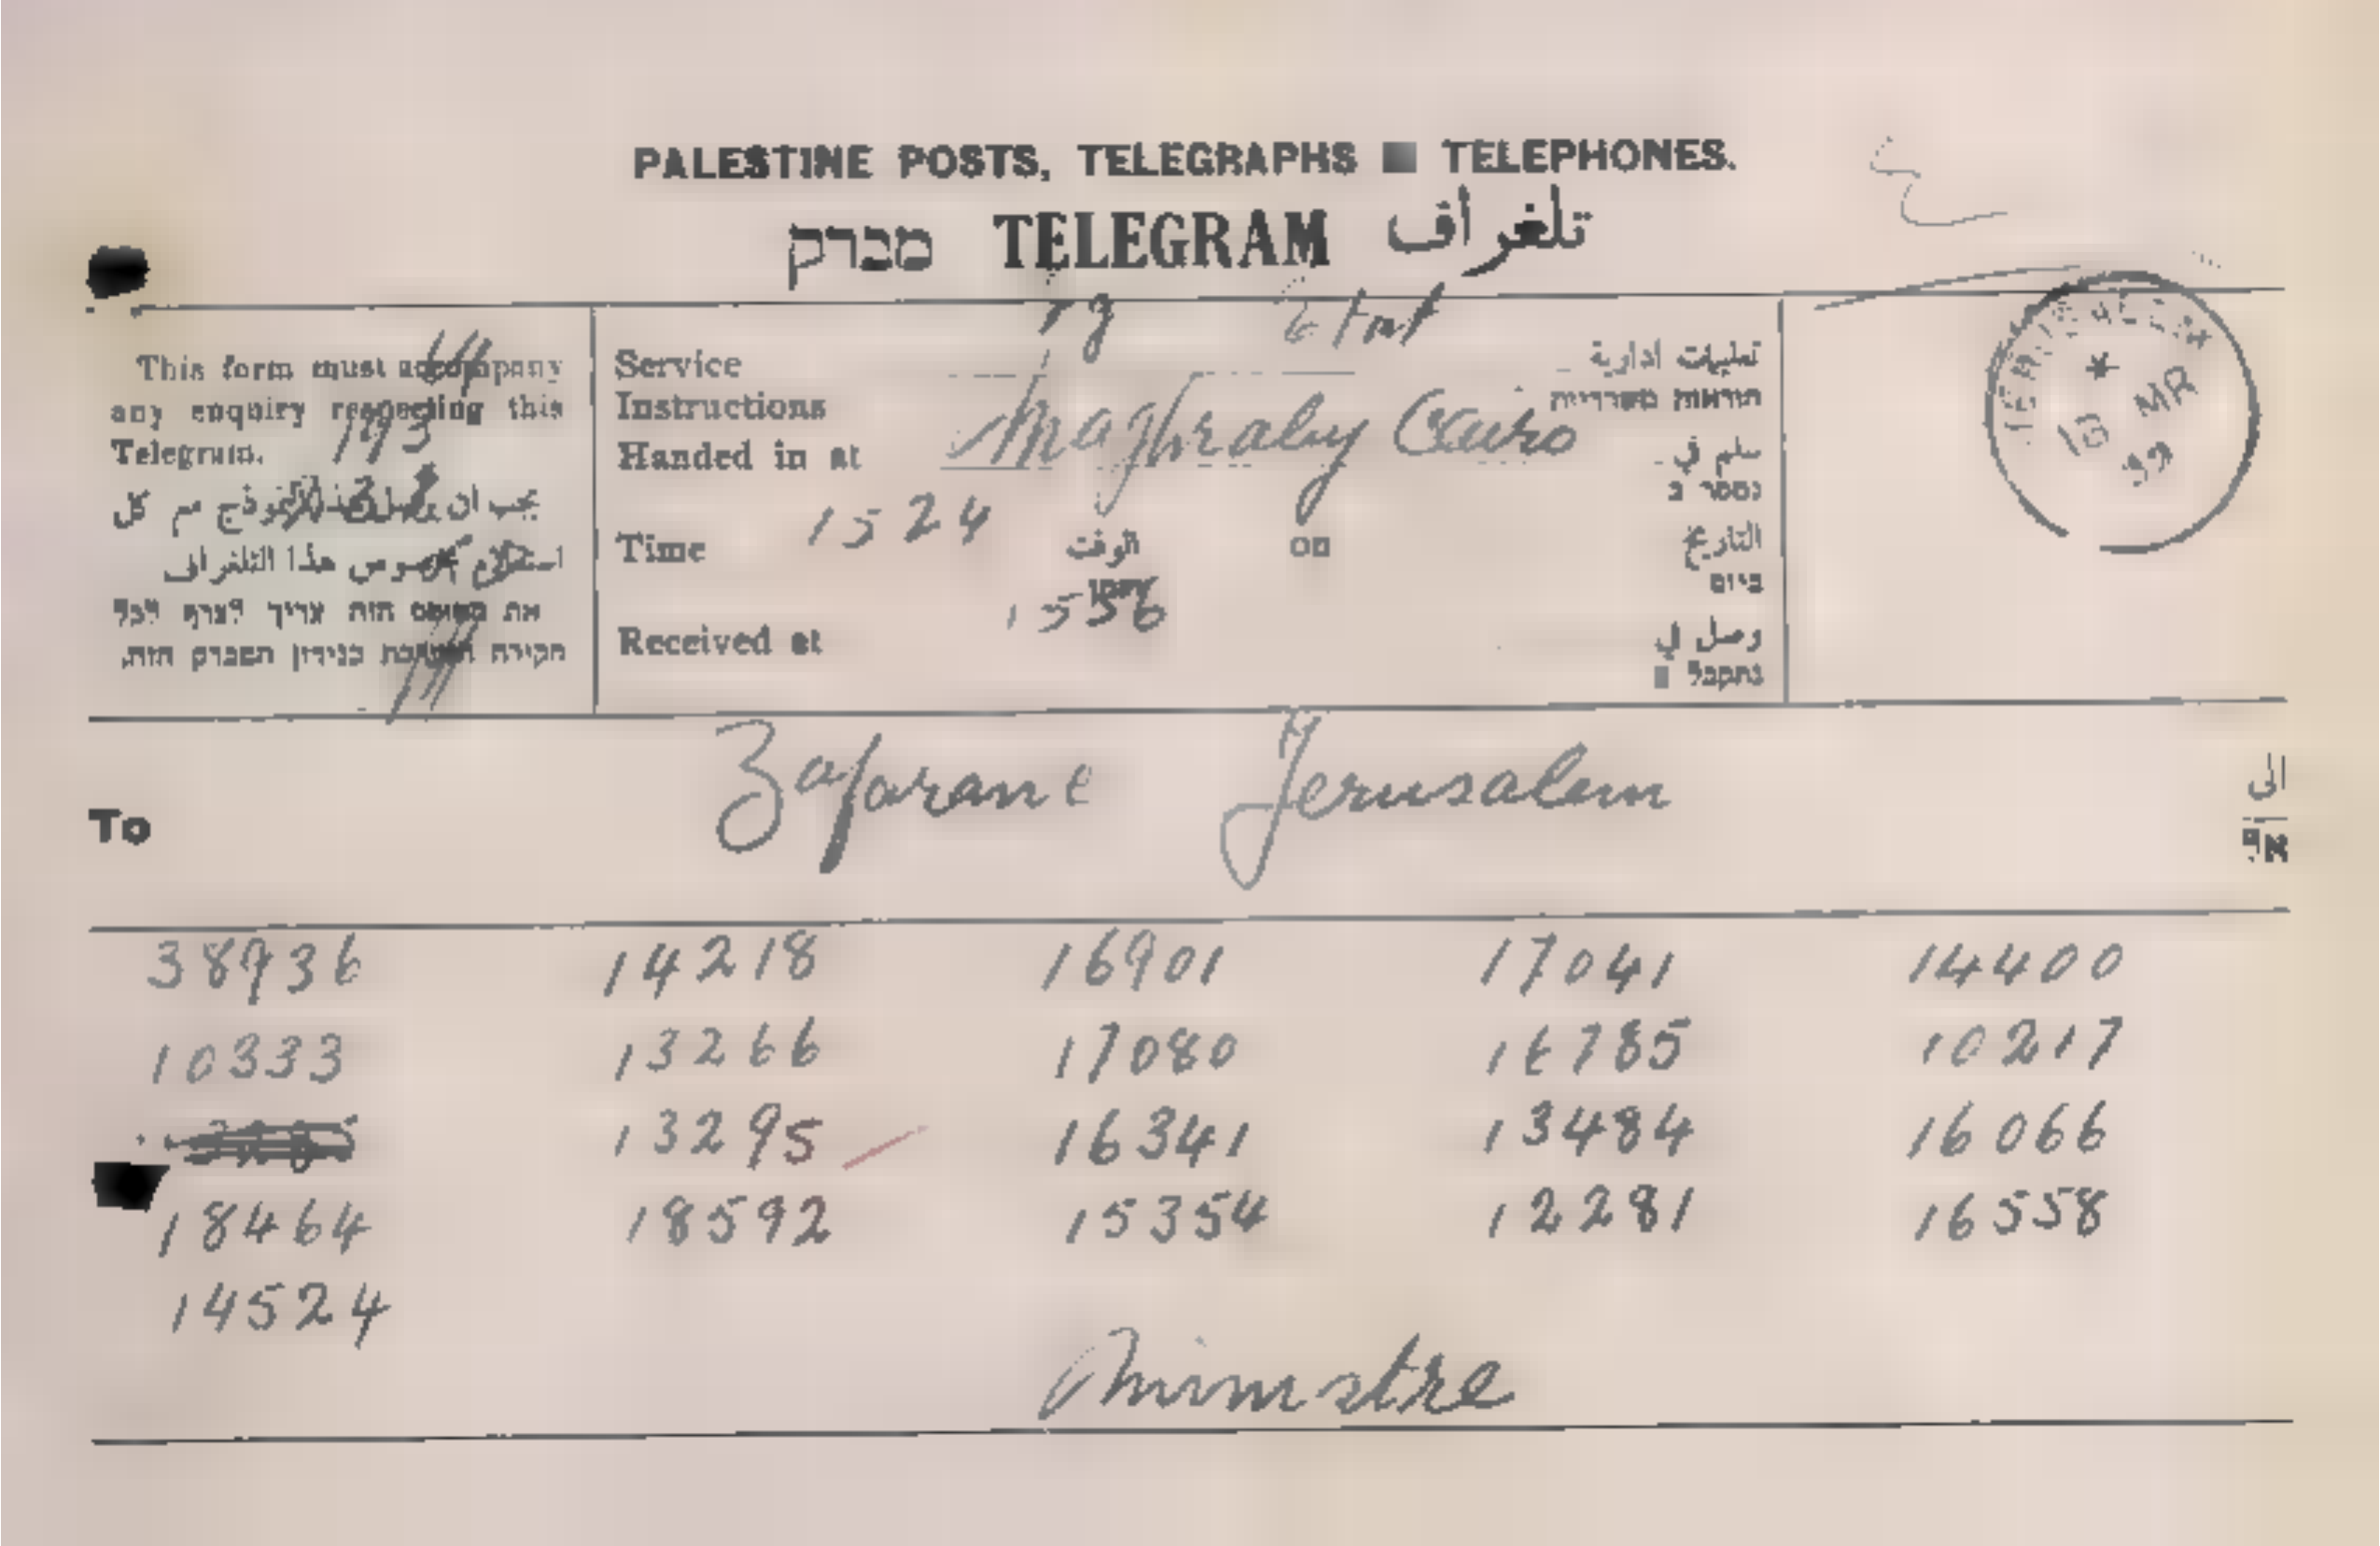 PALESTINE POSTS, TELEGRAPHS TELEPHONES.
מברק TELEGRAM تلغراف
This form must accompany
any enquiry respecting this
Telegram.
193
يجب ان كل
هذا التلغراف
את הטופס הזה צריך לצרף לכל
חקירה בנידון המברק הזה.
Service
Instructions
تعليمات ادارية
הוראות משרדיות
Handed in at Maghraby Cairo
سلم في
נמסר ב
Time 1524 الوقت
التاريخ
ביום
1556
Received at
وصل في
נתקבל
JERUSALEM
MR
39
To Zafarane Jerusalem الى
אל
38936 14218 16901 17041 14400
10333 13266 17080 16785 10217
13295 16341 13484 16066
18464 18592 15354 12281 16558
14524
Ministre